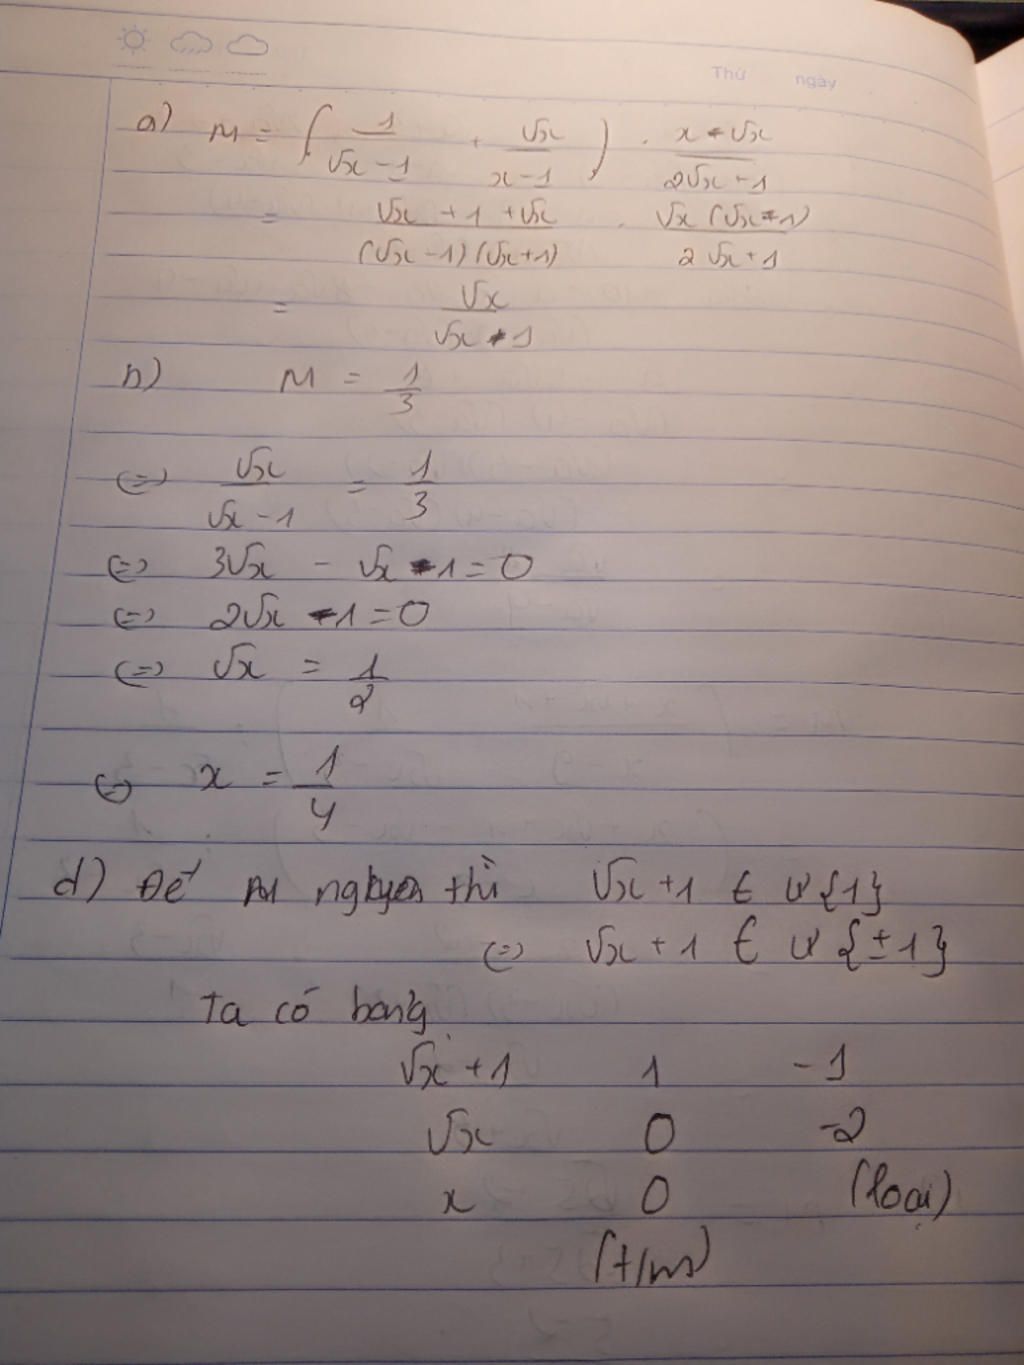 Thứ ngày
a) M = ( 1/(√x - 1) + √x/(x - 1) ) . (x - √x)/(2√x + 1)
= (√x + 1 + √x)/((√x - 1)(√x + 1)) . √x(√x - 1)/(2√x + 1)
= √x/(√x + 1)
b) M = 1/3
(=) √x/(√x - 1) = 1/3
(=) 3√x - √x - 1 = 0
(=) 2√x - 1 = 0
(=) √x = 1/2
(=) x = 1/4
d) Để M nguyên thì √x + 1 ∈ Ư{1}
(=) √x + 1 ∈ Ư{±1}
Ta có bảng
√x + 1 1 -1
√x 0 -2
x 0 (loại)
(t/m)